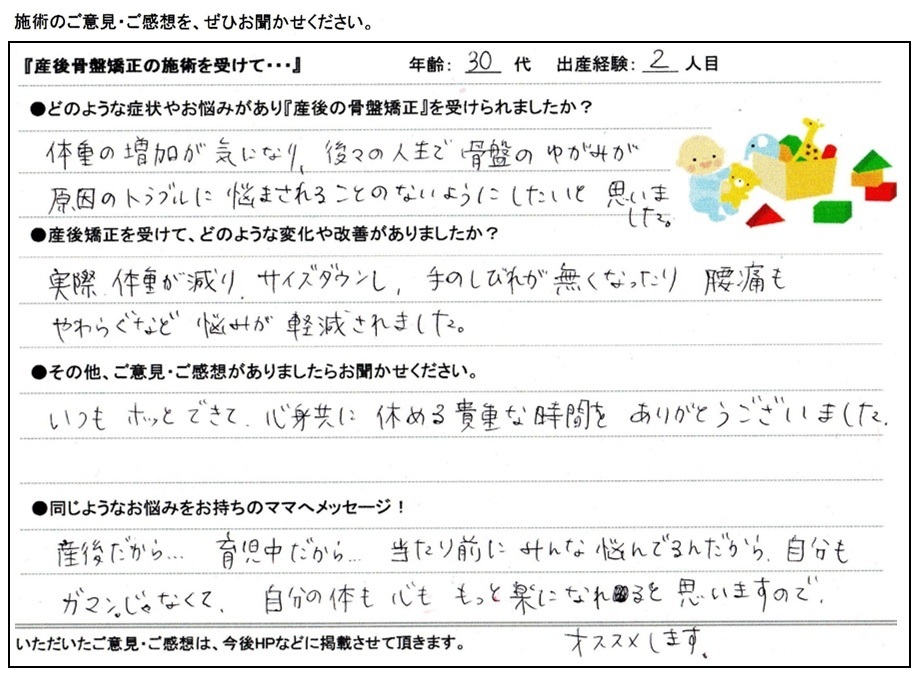 施術のご意見・ご感想を、ぜひお聞かせください。
『産後骨盤矯正の施術を受けて・・・』 年齢： 30 代 出産経験： 2 人目
●どのような症状やお悩みがあり『産後の骨盤矯正』を受けられましたか？
体重の増加が気になり、後々の人生で骨盤のゆがみが
原因のトラブルに悩まされることのないようにしたいと思いま
した。
●産後矯正を受けて、どのような変化や改善がありましたか？
実際、体重が減り、サイズダウンし、手のしびれが無くなったり 腰痛も
やわらぐなど 悩みが軽減されました。
●その他、ご意見・ご感想がありましたらお聞かせください。
いつも ホッとできて、心身共に 休める貴重な時間を ありがとうございました。
●同じようなお悩みをお持ちのママへメッセージ！
産後だから… 育児中だから… 当たり前に みんな悩んでるんだから、自分も
ガマン。じゃなくて、自分の体も 心も もっと楽になれると思いますので、
オススメします。
いただいたご意見・ご感想は、今後HPなどに掲載させて頂きます。